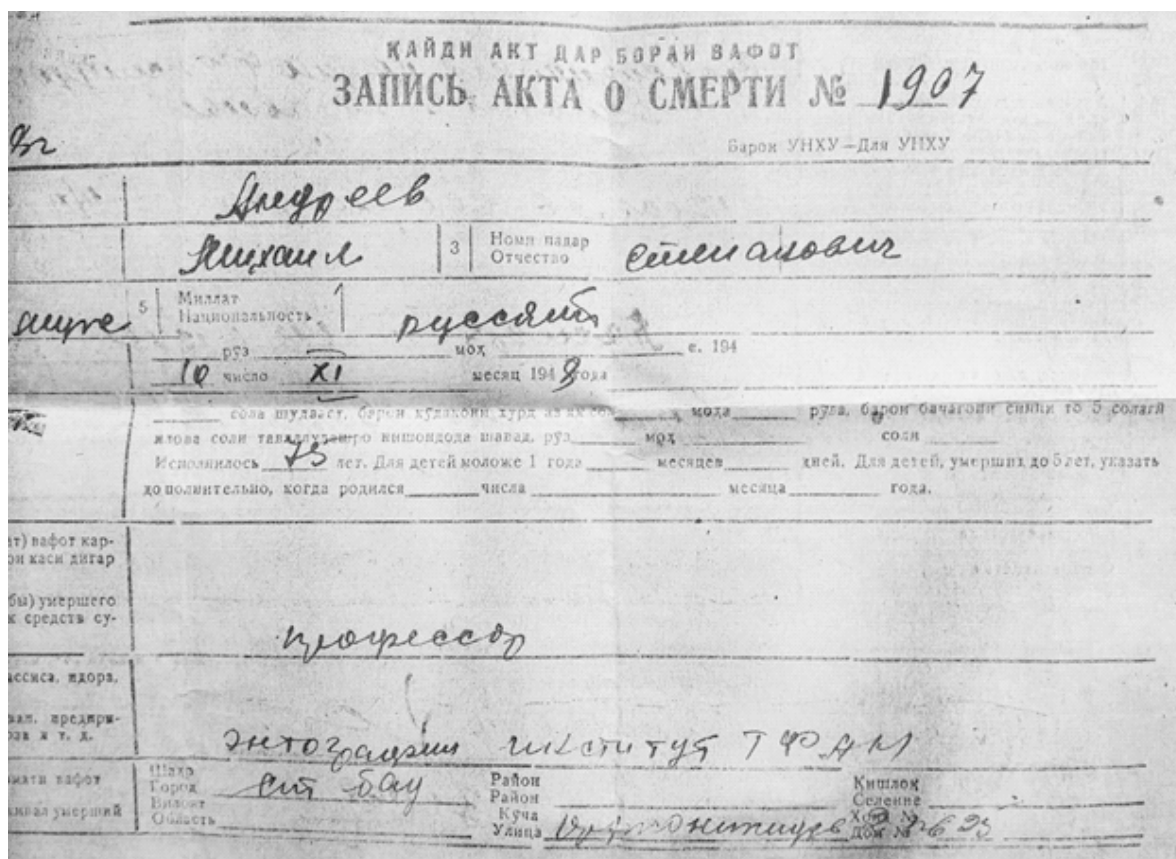 ҚАЙДИ АКТ ДАР БОРАИ ВАФОТ
ЗАПИСЬ АКТА О СМЕРТИ № 1907
Барои УНХУ—Для УНХУ
Андреев
Михаил 3 Номи падар
Отчество Степанович
5 Миллат
Национальность русский
рӯз мох с. 194
10 число XI месяц 1948 года
сола шудааст, барои кӯдакони хурд аз як сол моҳа рӯза, барои бачагони синни то 5 солагӣ
илова соли таваллудашро нишондода шавад, рӯз мох соли
Исполнилось 75 лет. Для детей моложе 1 года месяцев дней. Для детей, умерших до 5 лет, указать
дополнительно, когда родился числа месяца года.
ат) вафот кар-
он каси дигар
бы) умершего
к средств су-
профессор
ассиса, идора,
вал. предпри-
т. д.
энтографии институт ТФАН
вафот Шаҳр Район Кишлоқ
Город Ст бад Район Селение
умерший Вилоят Куча Хона №
Область Улица Дом № 23